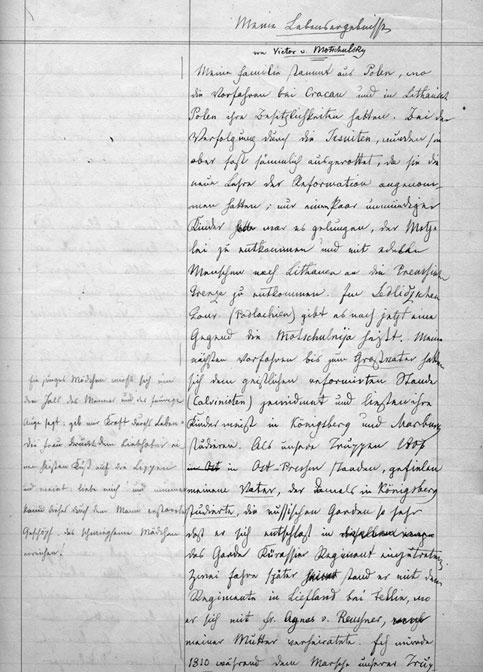 Meine Lebensergebnisse
von Victor v. Motschulsky
Meine Familie stammt aus Polen, wo
die Vorfahren bei Cracau und in Lithauisch
Polen ihre Besitzlichkeiten hatten. Bei der
Verfolgung durch die Jesuiten, wurden sie
aber fast sämmtlich ausgerottet, da sie die
neue Lehre der Reformation angenom-
men hatten; nur einem Paar unmündiger
Kinder war es gelungen, der Metze-
lei zu entkommen und mit edlen
Menschen nach Lithauen an die Preussische
Grenze zu entkommen. Im
(Podlachien) gibt es noch jetzt eine
Gegend die Motschulnija heisst. Meine
nächsten Vorfahren bis zum Grossvater hatten
sich dem geistlichen reformirten Stande
(Calvinisten) gewidmet und liessen ihre
Kinder meist in Königsberg und Marburg
studieren. Als unsere Truppen 1806
in Ost in Ost-Preussen standen, gefielen
meinem Vater, der damals in Königsberg
studierte, die russischen Garden so sehr
dass er sich entschloss in
das Garde Kürassier Regiment einzutreten.
Zwei Jahre später stand er mit dem
Regimente in Liefland bei Fellin, wo
er sich mit Fr. Agnes v.
meiner Mutter verheirathete. Ich wurde
1810 während dem Marsche unserer Trup-
Ein junges Mädchen wirft sich um
den Hals des Mannes und das feurige
Auge sagt: gib mir Kraft durch Leben.
Die Frau drückt dem Liebhaber ei-
nen heissen Kuss auf die Lippen
und meint: liebe mich! und nimmer
kann dieser durch den Mann
Geschöpf, das schweigsame Mädchen
erreichen!